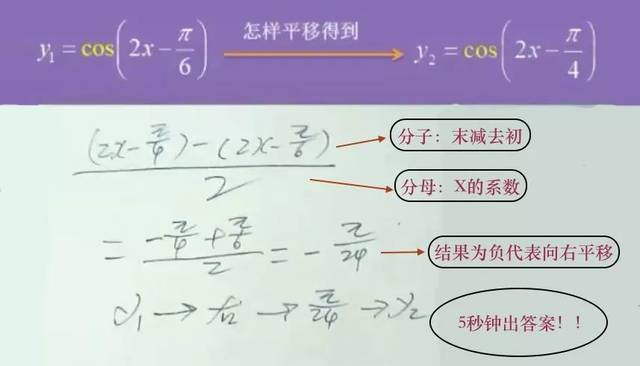 y₁ = cos(2x − π/6) 怎样平移得到 y₂ = cos(2x − π/4)
(2x − π/4) − (2x − π/6) 分子:末减去初
2 分母:X的系数
= (−π/4 + π/6)/2 = − π/24 结果为负代表向右平移
y₁ → 右 → π/24 → y₂ 5秒钟出答案!!